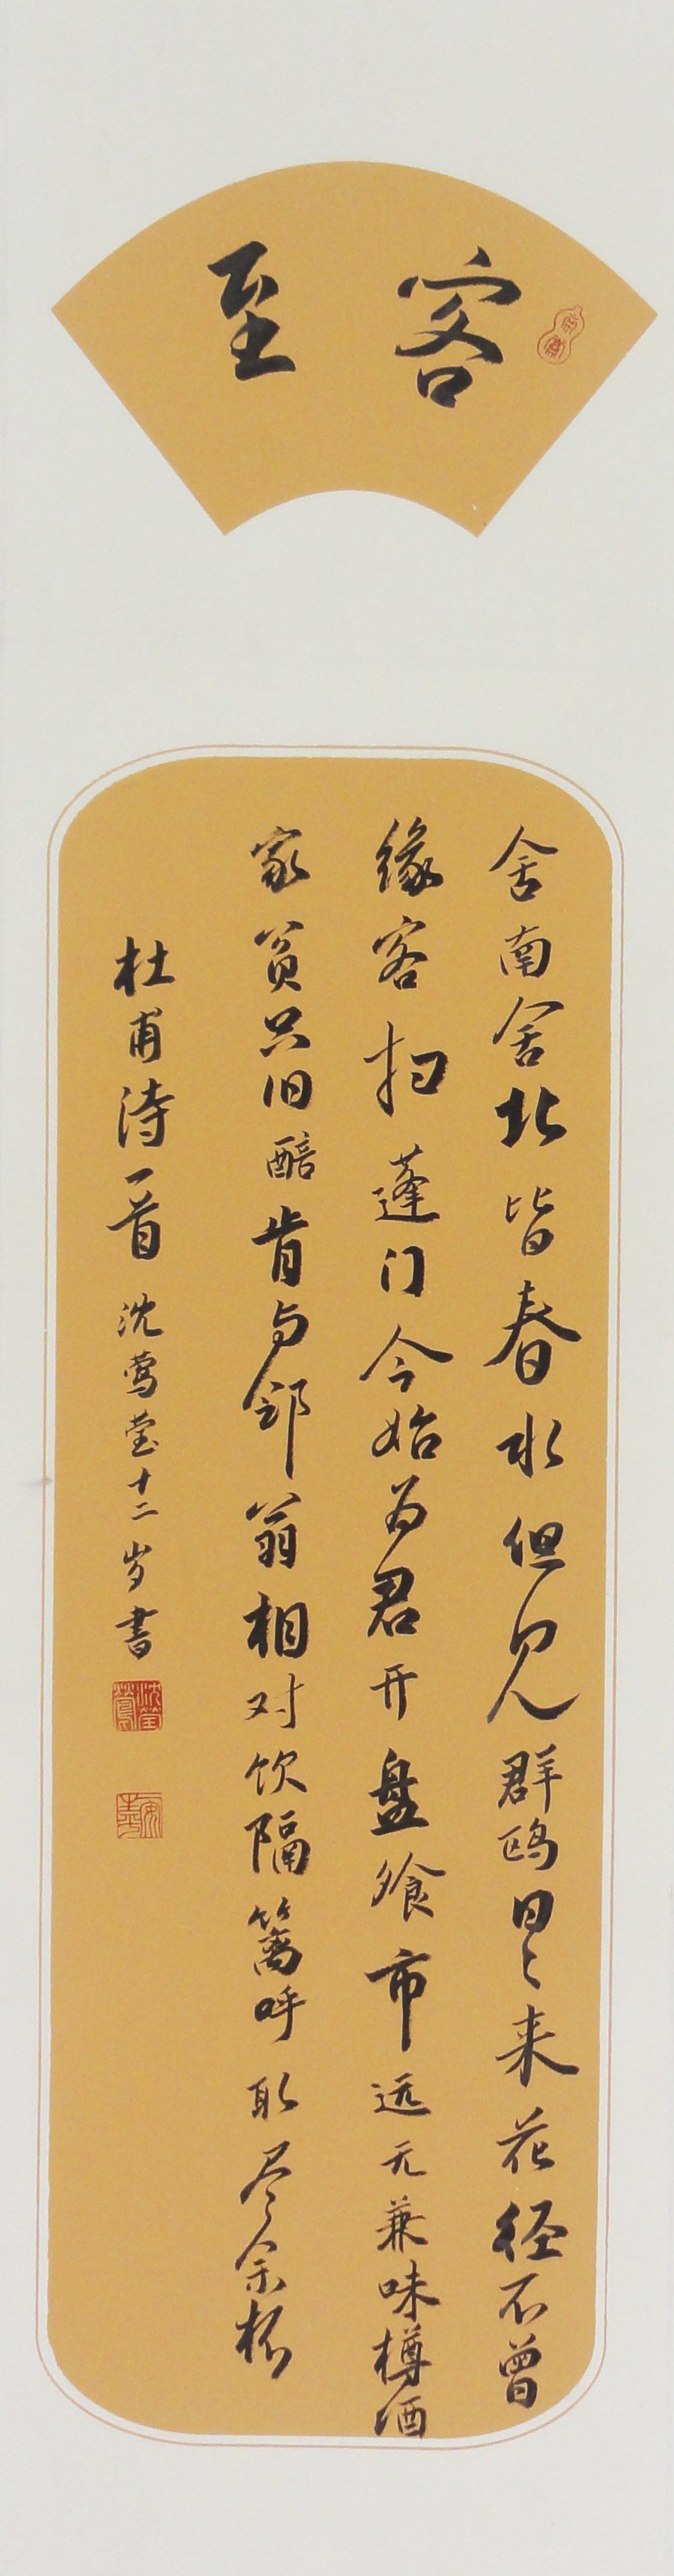 客至
舍南舍北皆春水但见群鸥日々来花径不曾
缘客扫蓬门今始为君开盘飧市远无兼味樽酒
家贫只旧醅肯与邻翁相对饮隔篱呼取尽余杯
杜甫诗一首 沈莺莹十二岁书